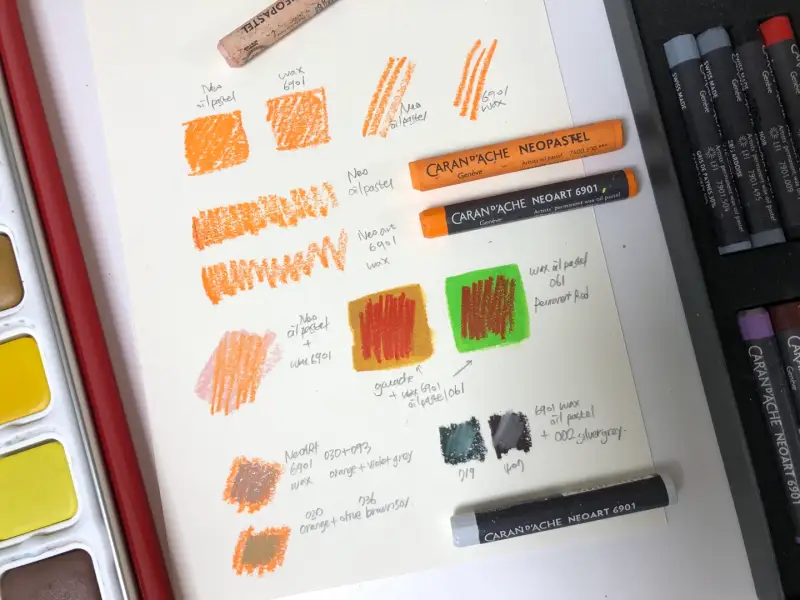 NEOPASTEL
Neo
oil pastel
wax
6901
Neo
oil pastel
6901
wax
CARAN D'ACHE NEOPASTEL
Genève
Artists oil pastel
Neo
oil pastel
CARAN D'ACHE NEOART 6901
Genève
Artists' permanent wax oil pastel
Neoart
6901
wax
wax oil pastel
061
Permanent Red
Neo
oil pastel
+
wax 6901
+ wax 6901
oil pastel 061
6901 wax
oil pastel
+ 002 silvergray
719
407
Neoart
6901
wax
030+093
orange + violet grey
030
036
orange + olive brown
CARAN D'ACHE NEOART 6901
SWISS MADE
Genève
SWISS MADE
Genève
Genève
CARAN D'ACHE NEOART 6901
CARAN D'ACHE NEOART 6901